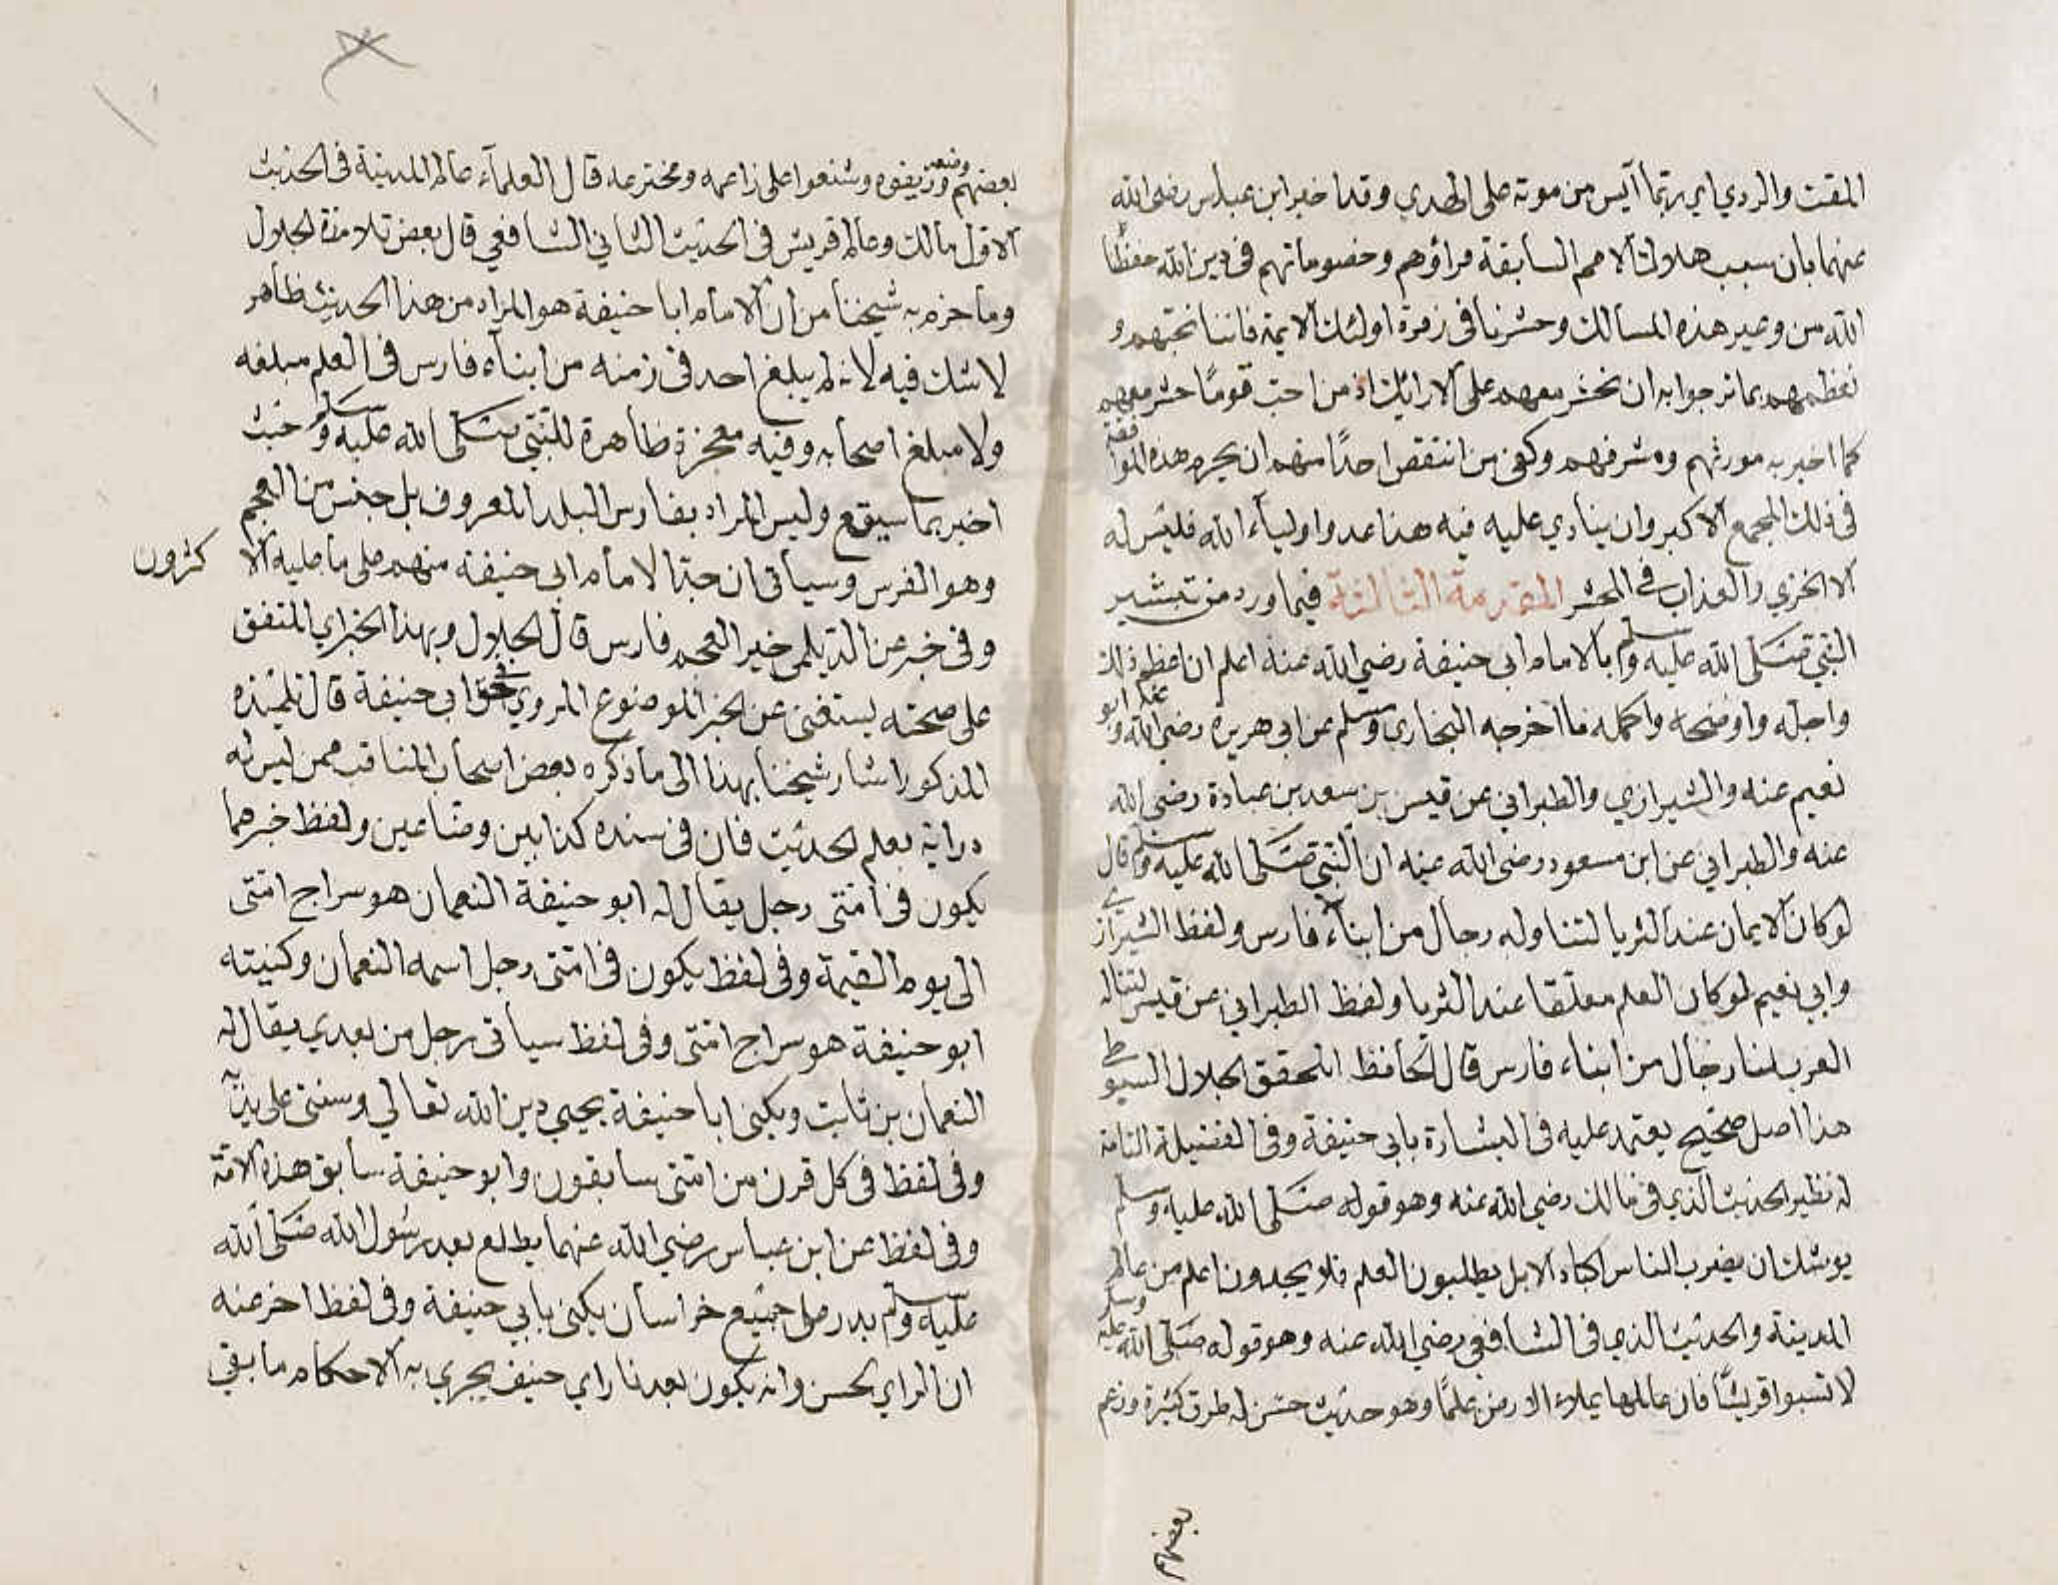 المقت والردي اي ربما آيس من موته على الهدي وقد اخبر ابن عباس رضى الله
عنهما بان سبب هلاك الامم السابقة مراؤهم وخصوماتهم فى دين الله حفظنا
الله من وصير هذه المسالك وحشرنا فى زمرة اولئك الايمة فاننا نحبهم و
نعظمهم بما نرجوا به ان نحشر معهم على الارائك اذ من احب قوما حشر معهم
كما اخبر به مورثهم ومشرفهم وكفى من انتقص احدًا منهم ان يحرم هذه الموافقة
فى ذلك المجمع الاكبر وان ينادي عليه فيه هذا عدو اولياء الله فليس له
الا الخزي والعذاب فى المحشر المقدمة الثالثة فيما ورد من تبشير
النبي صلى الله عليه وسلم بالامام ابى حنيفة رضي الله عنه اعلم ان اعظم ذلك
واجله واوضحه واكمله ما اخرجه البخارى ومسلم عن ابى هريرة رضي الله عنه وابو
نعيم عنه والشيرازي والطبراني عن قيس بن سعد بن عبادة رضى الله
عنه والطبراني عن ابن مسعود رضى الله عنه ان النبي صلى الله عليه وسلم قال
لو كان الايمان عند الثريا لتناوله رجال من ابناء فارس ولفظ الشيرازي
وابي نعيم لو كان العلم معلقا عند الثريا ولفظ الطبراني عن قيس لتناله
العرب لنا رجال من ابناء فارس قال الحافظ المحقق الجلال السيوطي
هذا اصل صحيح يعتمد عليه فى البشارة بابي حنيفة وفى الفضيلة التامة
له نظير الحديث الذي فى مالك رضي الله عنه وهو قوله صلى الله عليه وسلم
يوشك ان يضرب الناس اكباد الابل يطلبون العلم فلا يجدون اعلم من عالم
المدينة والحديث الذي فى الشافعي رضي الله عنه وهو قوله صلى الله عليه وسلم
لا تسبوا قريشًا فان عالمها يملاء الارض علمًا وهو حديث حسن له طرق كثيرة وزعم
بعضهم
بعضهم وضعه وزيفوه وشنعوا على زاعمه ومخترعه قال العلمآء عالم المدينة فى الحديث
الاول مالك وعالم قريش فى الحديث الثاني الشافعي قال بعض تلامذة الجلال
وما جزم به شيخنا من ان الامام ابا حنيفة هو المراد من هذا الحديث ظاهر
لا شك فيه لانه لم يبلغ احد فى زمنه من ابناء فارس فى العلم مبلغه
ولا مبلغ اصحابه وفيه معجزة ظاهرة للنبي صلى الله عليه وسلم حيث
اخبر بما سيقع وليس المراد بفارس البلد المعروف بل جنس من العجم
وهو الفرس وسياتى ان جد الامام ابى حنيفة منهم على ما عليه الا كثرون
وفى خبر عن الديلمى خير العجم فارس قال الجلال وبهذا الخبر اي المتفق
على صحته يستغنى عن الخبر الموضوع المروي فى حق ابى حنيفة قال تلميذه
المذكور اشار شيخنا بهذا الى ما ذكره بعض اصحاب المناقب ممن ليس له
دراية بعلم الحديث فان فى سنده كذابين وضاعين ولفظ خبرهما
يكون فى امتى رجل يقال له ابو حنيفة النعمان هو سراج امتى
الى يوم القيمة وفى لفظ يكون فى امتى رجل اسمه النعمان وكنيته
ابو حنيفة هو سراج امتى وفى لفظ سياتى رجل من بعدي يقال له
النعمان بن ثابت ويكنى ابا حنيفة يحيي دين الله تعالي وسنتى على يديه
وفى لفظ فى كل قرن من امتى سابقون وابو حنيفة سابق هذه الامة
وفى لفظ عن ابن عباس رضي الله عنهما يطلع بعد رسول الله صلى الله
عليه وسلم بدر على جميع خراسان يكنى بابي حنيفة وفى لفظ اخر عنه
ان الراي الحسن وانه يكون بعدنا راي حنيف يجري به الاحكام ما بقي